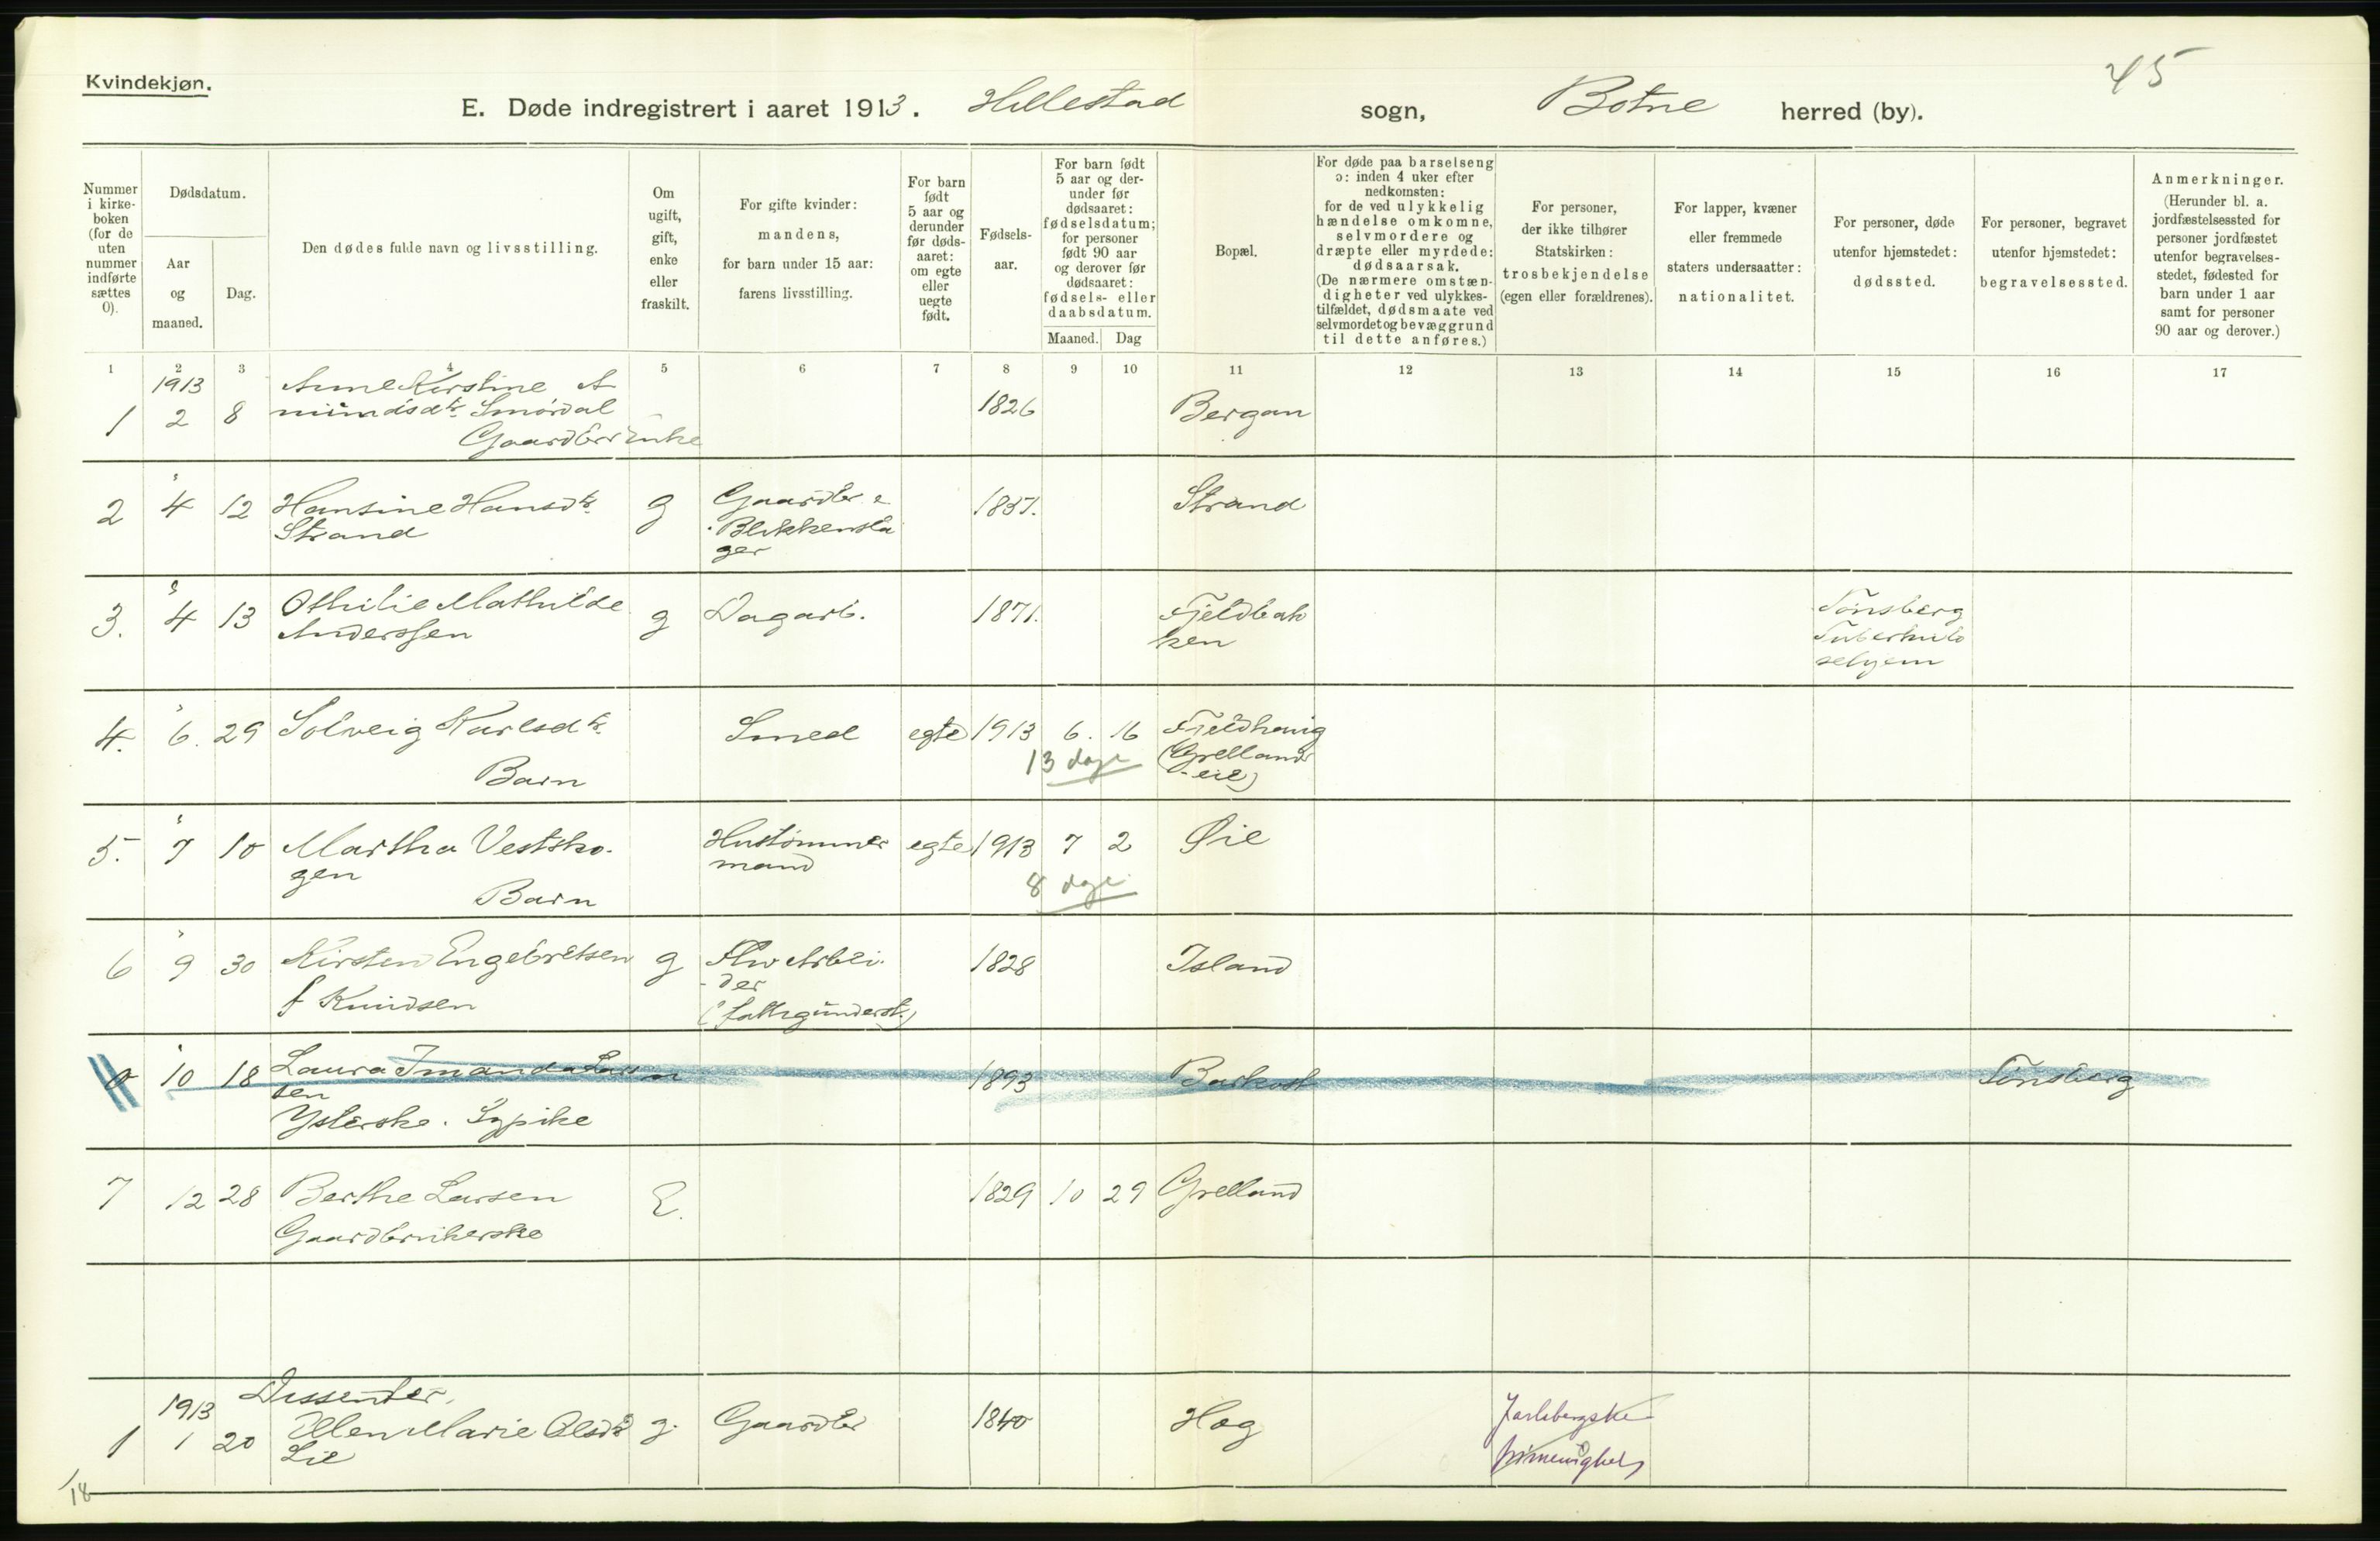 45
Kvindekjøn.
E. Døde indregistrert i aaret 1913. Hillestad sogn, Botne herred (by).
Nummer i kirke-boken (for de uten nummer indførte sættes 0).
Dødsdatum.
Aar og maaned.
Dag.
Den dødes fulde navn og livsstilling.
Om ugift, gift, enke eller fraskilt.
For gifte kvinder: mandens, for barn under 15 aar: farens livsstilling.
For barn født 5 aar og derunder før døds-aaret: om egte eller uegte født.
Fødsels-aar.
For barn født 5 aar og der-under før dødsaaret: fødselsdatum; for personer født 90 aar og derover før dødsaaret: fødsels- eller daabsdatum.
Maaned. Dag
Bopæl.
For døde paa barselseng ɔ: inden 4 uker efter nedkomsten: for de ved ulykkelig hændelse omkomne, selvmordere og dræpte eller myrdede: dødsaarsak. (De nærmere omstæn-digheter ved ulykkes-tilfældet, dødsmaate ved selvmordet og bevæggrund til dette anføres.)
For personer, der ikke tilhører Statskirken: trosbekjendelse (egen eller forældrenes).
For lapper, kvæner eller fremmede staters undersaatter: nationalitet.
For personer, døde utenfor hjemstedet: dødssted.
For personer, begravet utenfor hjemstedet: begravelsessted.
Anmerkninger. (Herunder bl. a. jordfæstelsessted for personer jordfæstet utenfor begravelses-stedet, fødested for barn under 1 aar samt for personer 90 aar og derover.)
1 2 3 4 5 6 7 8 9 10 11 12 13 14 15 16 17
1913 Anne Kirstine A
1 2 8 mundsdtr. Smørdal 1826 Bergan
Gaardbr Enke
2 " 4 12 Hansine Hansdtr. g Gaardbr. 1837. Strand
Strand Blikkensla
ger
3. " 4 13 Othilie Mathilde g Dagarb. 1871. Fjeldbak Tønsberg
Anderssen ken Tuberkulo
sehjem
4. " 6. 29 Solveig Karlsdtr. Smed egte 1913 6. 16 Fjeldhaug
13 dage (Grelland
Barn -eie)
5. " 7 10 Martha Vestsko- Hustømmer egte 1913 7 2 Øie
gen mand
Barn 8 dage
6 " 9 30 Kirsten Engebretsen g Arbei- 1828 Island
f Knudsen der
(fattigunderst.)
0 " 10 18 Laura Lar 1893 Barkost Tønsberg
sen
Ysterske. Sypike
7 12 28 Berthe Larsen E. 1829 10 29 Grelland
Gaardbrukerske
Dissenter.
1913
1 1 20 Ellen Marie Olsdtr g. Gaardbr 1840 Hag Jarlsbergske
Lie frimenighet
18